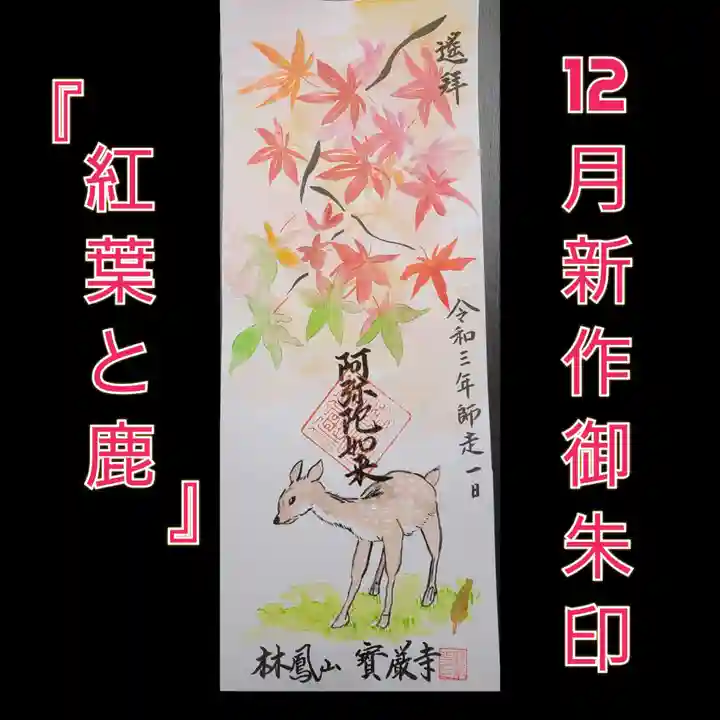 12月新作御朱印
『紅葉と鹿』
遙拝
令和三年師走一日
阿弥陀如来
林鳳山 寳厳寺